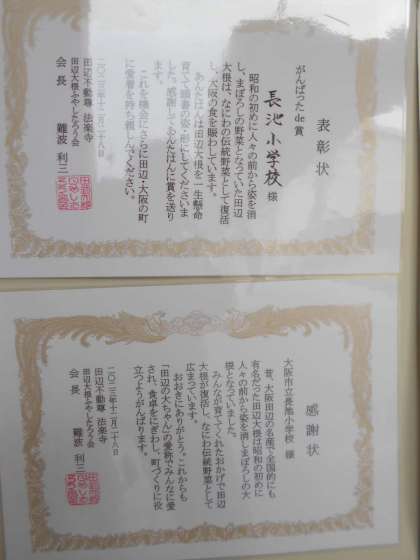 表彰状
がんばった de 賞
長池小学校 様
昭和の初めに人々の前から姿を消
し、まぼろしの野菜となっていた田辺
大根は、なにわの伝統野菜として復活
し、大阪の食を賑わしています。
あんたはんは田辺大根を一生懸命
育てて
した。感謝しておんたはんに賞を送り
ます。
これを機会にさらに田辺・大阪の町
に愛着を持ち親しんでください。
二〇二三年十二月二十八日
田辺不動尊 法楽寺
田辺大根ふやしたろう会
会長 難波 利三
感謝状
大阪市立長池小学校 様
昔、大阪田辺の名産で全国的にも
有名だった田辺大根は昭和の初めに
人々の前から姿を消しまぼろしの大
根となっていました。
みんなが育ててくれたおかげで田辺
大根が復活し、なにわ伝統野菜として
広まっています。
おおきにありがとう。これからも
「田辺の大ちゃん」の愛称でみんなに愛
され、食卓をにぎわし、町づくりに役
立つようがんばります。
二〇二三年十二月二十八日
田辺不動尊 法楽寺
田辺大根ふやしたろう会
会長 難波 利三